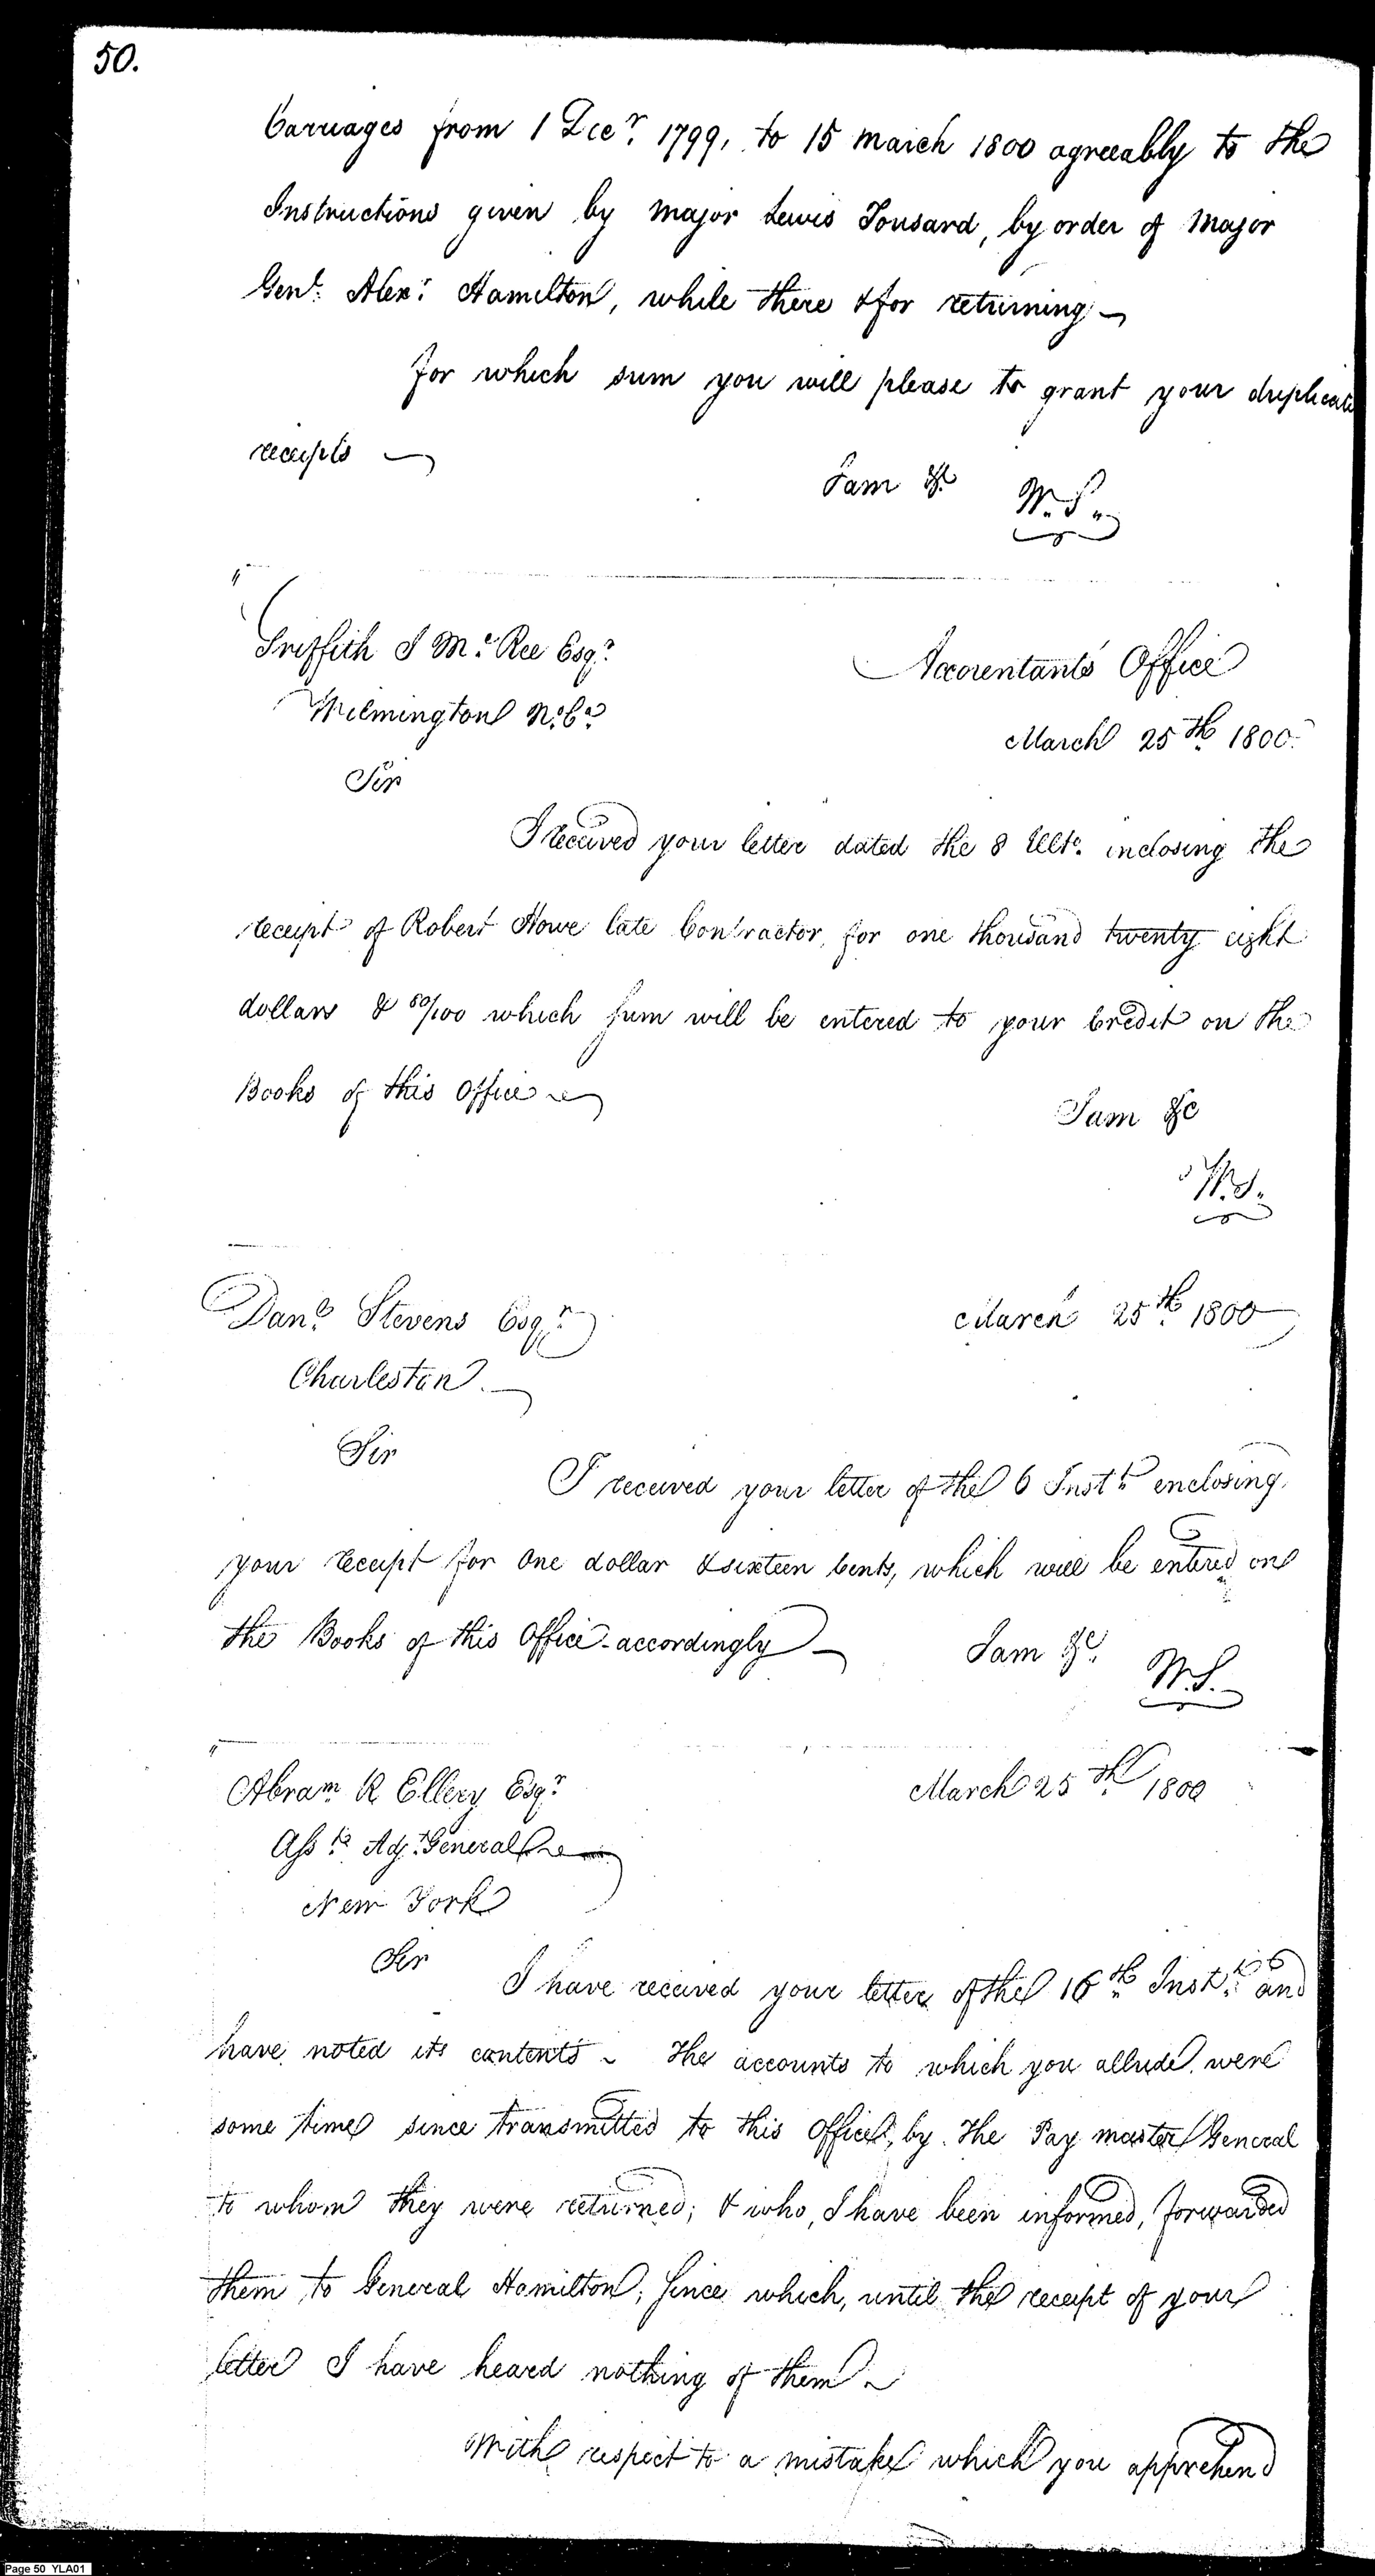 50.
Carriages from 1 Decr. 1799, to 15 March 1800 agreeably to the
Instructions given by Major Lewis Tousard, by order of Major
Genl. Alexr. Hamilton, while there & for returning
for which sum you will please to grant your duplicate
receipts
I am &c
W.S.
Griffith J McRee Esqr.
Wilmington No. Ca.
Accountants Office
March 25th 1800.
Sir
I received your letter dated the 8 Ulto. inclosing the
receipt of Robert Howe late Contractor, for one thousand twenty eight
dollars & 80/100 which sum will be entered to your Credit on the
Books of this Office
I am &c
W.S.
Danl. Stevens Esqr.
March 25th 1800
Charleston.
Sir
I received your letter of the 6 Instt. enclosing
your receipt for One dollar & sixteen Cents, which will be entered on
the Books of this Office accordingly
I am &c.
W.S.
Abram. R Ellery Esqr.
March 25th 1800
Asst. Adjt. General
New York
Sir
I have received your letter of the 16th Instt. and
have noted its contents ~ The accounts to which you allude were
some time since transmitted to this Office, by the Pay master General
to whom they were returned; & who, I have been informed, forwarded
them to General Hamilton; Since which, until the receipt of your
letter I have heard nothing of them ~
With respect to a mistake which you apprehend
Page 50 YLA01